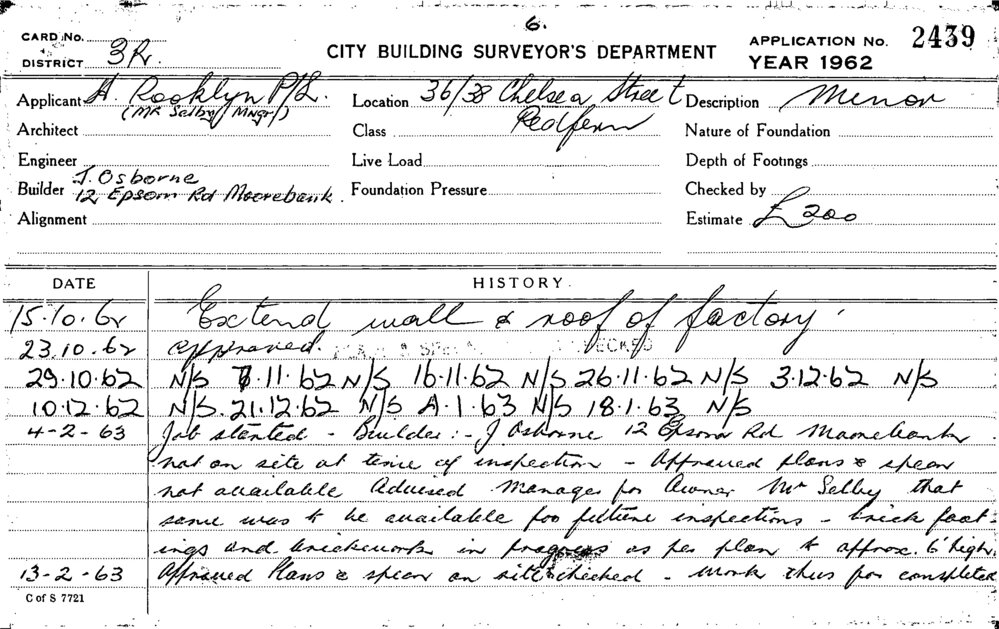 6.
CARD No.
DISTRICT 3R.
CITY BUILDING SURVEYOR'S DEPARTMENT
APPLICATION No. 2439
YEAR 1962
Applicant H. Rocklyn P/L. Location 36/38 Chelsea Street Description Minor
(Mr Selby Mngr) Redfern
Architect Class Nature of Foundation
Engineer Live Load Depth of Footings
Builder J. Osborne Foundation Pressure Checked by
12, Epsom Rd Moorebank.
Alignment Estimate £200
DATE HISTORY.
15.10.62 Extend wall & roof of factory.
23.10.62 approved. CHECKED
29.10.62 N/S 7.11.62 N/S 16.11.62 N/S 26.11.62 N/S 3.12.62 N/S
10.12.62 N/S. 21.12.62 N/S 4.1.63 N/S 18.1.63 N/S
4-2-63 Job started - Builder:- J Osborne 12 Epsom Rd Moorebank
not on site at time of inspection - Approved plans & specn
not available Advised Manager for Owner Mr Selby that
same was to be available for future inspections - brick foot-
ings and brickwork in progress as per plan to approx. 6' high.
13-2-63 Approved Plans & specn on site & checked - work thus far completed
C of S 7721